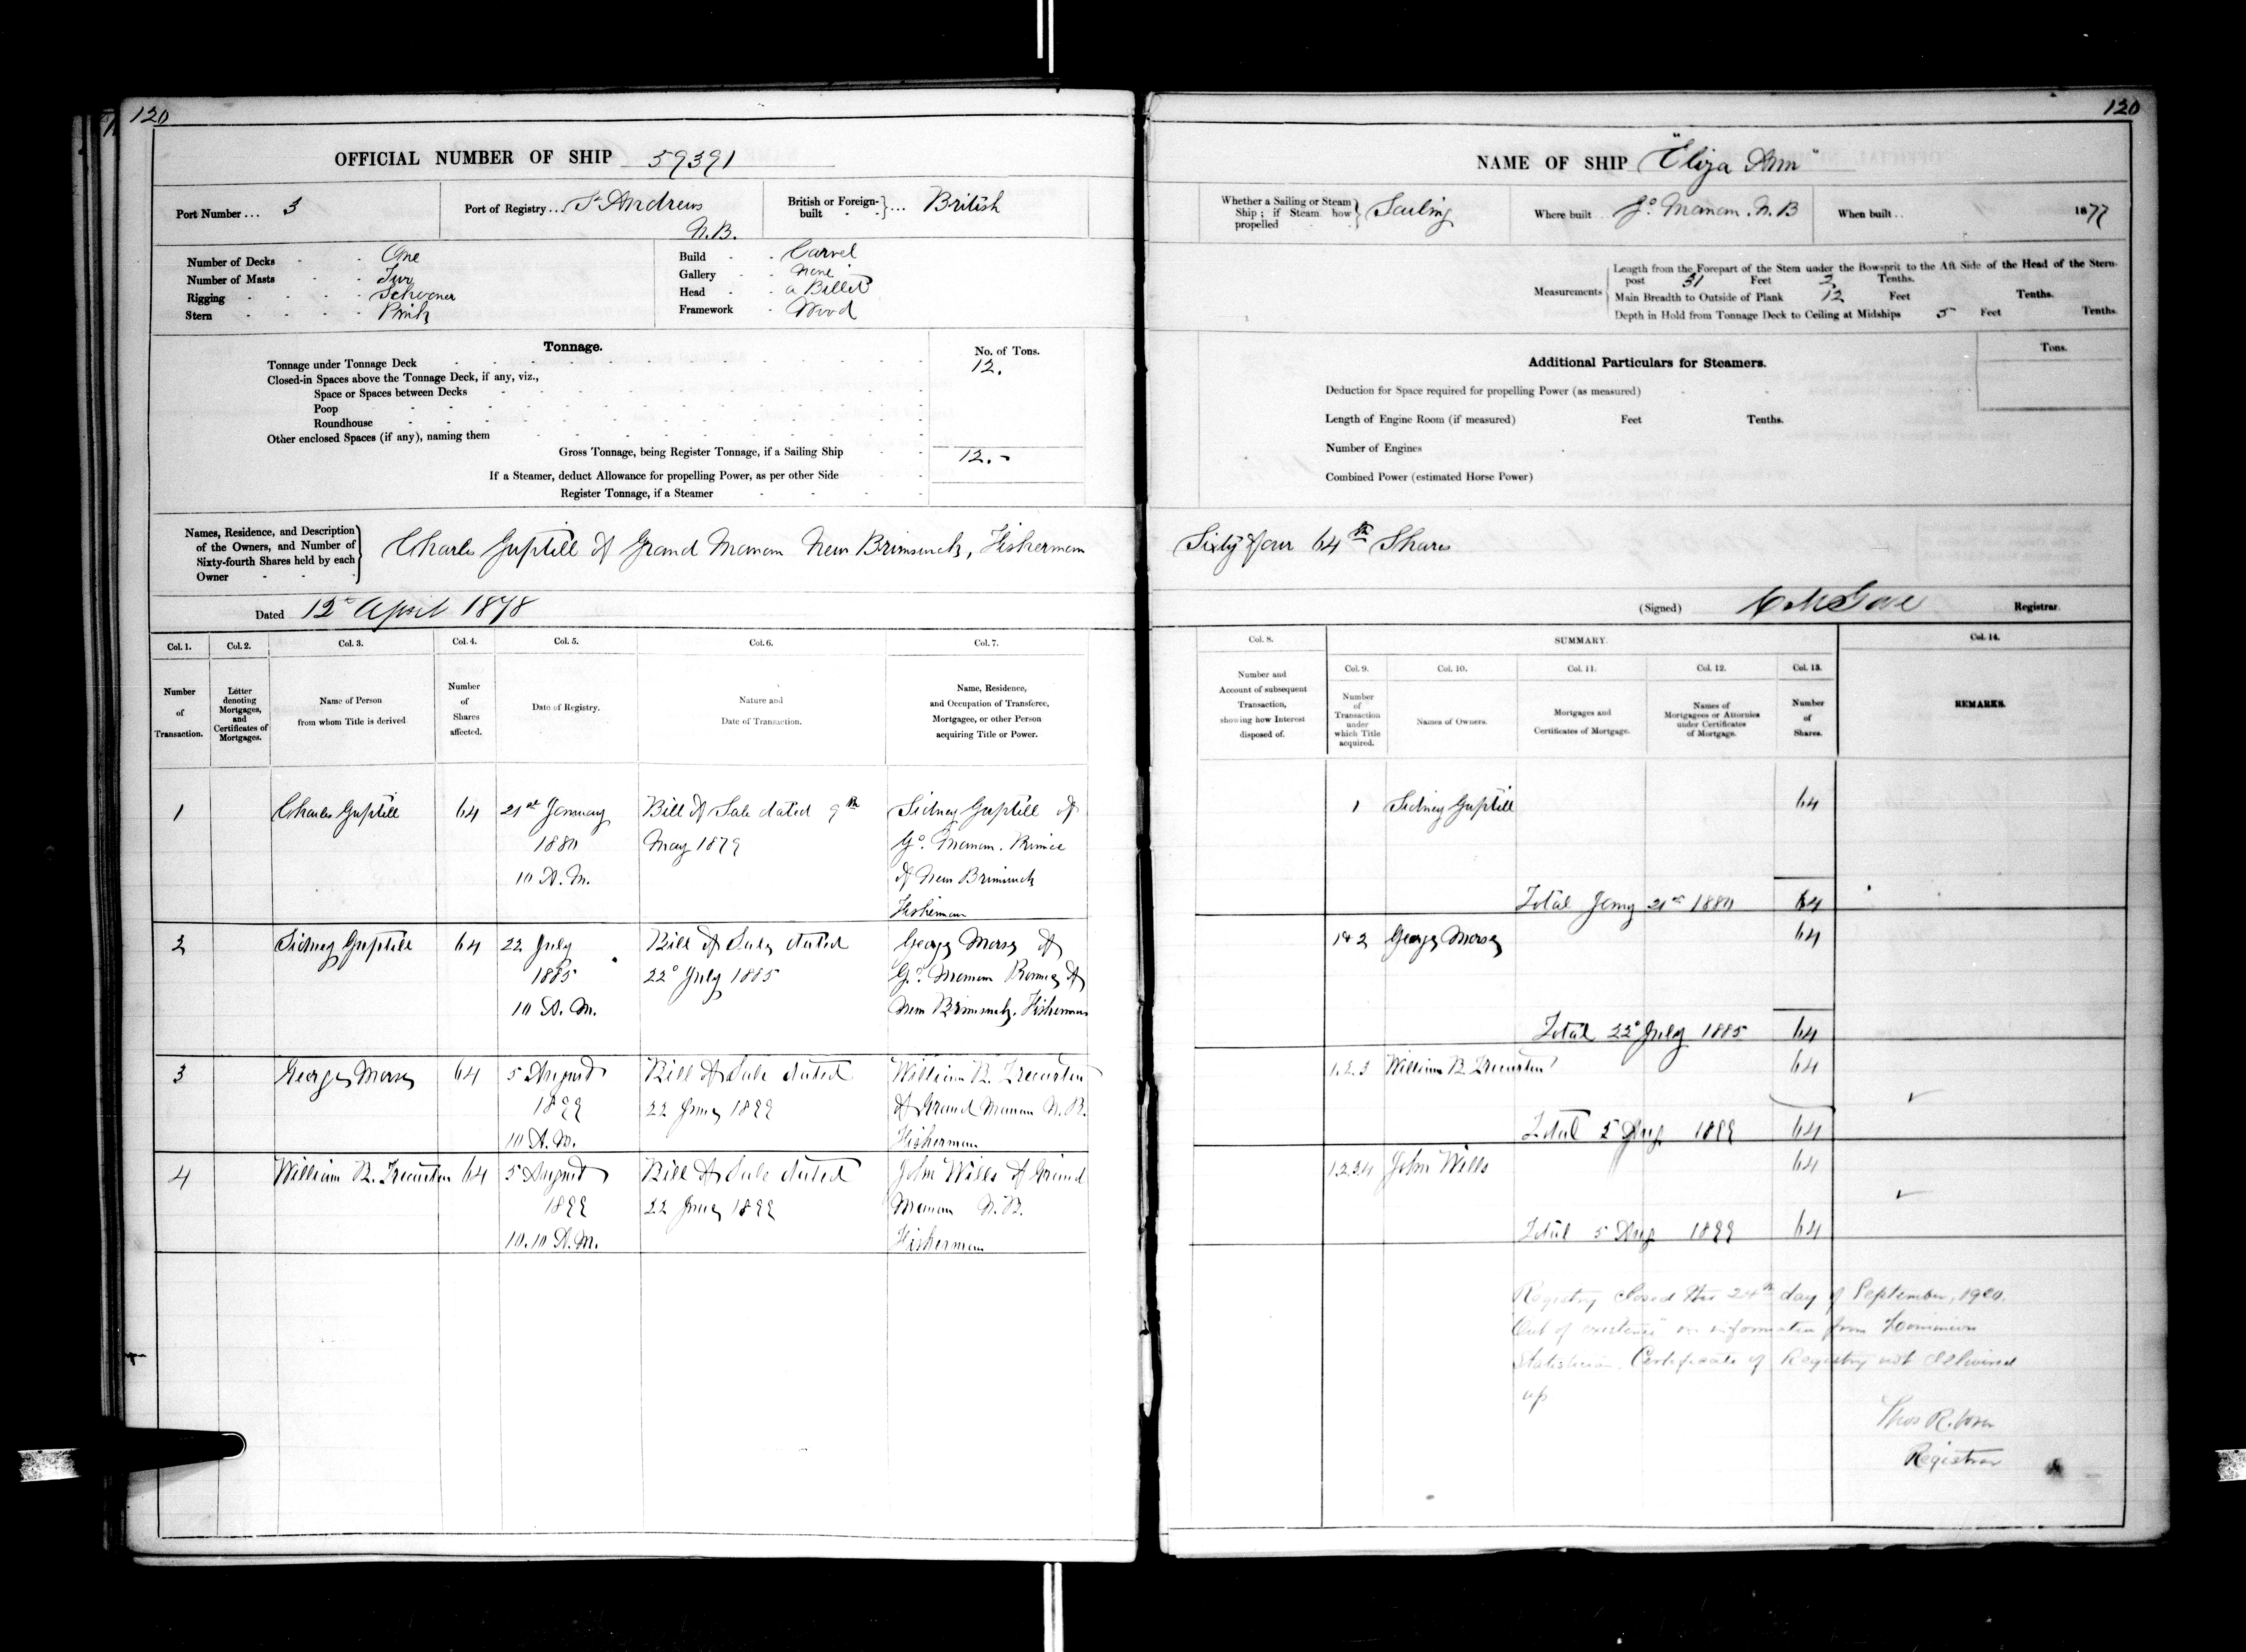 120
OFFICIAL NUMBER OF SHIP 59391
Port Number ... 3
Port of Registry ... St Andrews
N.B.
British or Foreign-built } ... British
Number of Decks - - One
Number of Masts - - Two
Rigging - - - - Schooner
Stern - - - - Pink
Build - - Carvel
Gallery - - None
Head - - a Billet
Framework - Wood
Tonnage.
No. of Tons.
Tonnage under Tonnage Deck 12.
Closed-in Spaces above the Tonnage Deck, if any, viz.,
Space or Spaces between Decks
Poop
Roundhouse
Other enclosed Spaces (if any), naming them
Gross Tonnage, being Register Tonnage, if a Sailing Ship 12.-
If a Steamer, deduct Allowance for propelling Power, as per other Side
Register Tonnage, if a Steamer
Names, Residence, and Description
of the Owners, and Number of
Sixty-fourth Shares held by each
Owner
Charles Guptill of Grand Manan New Brunswick, Fisherman
Dated 12th April 1878
Col. 1. Col. 2. Col. 3. Col. 4. Col. 5. Col. 6. Col. 7.
Number of Transaction.
Letter denoting Mortgages, and Certificates of Mortgages.
Name of Person from whom Title is derived
Number of Shares affected.
Date of Registry.
Nature and Date of Transaction.
Name, Residence, and Occupation of Transferee, Mortgagee, or other Person acquiring Title or Power.
1 Charles Guptill 64 21st January Bill of Sale dated 9th Sidney Guptill of
1880 May 1879 Go. Manan. Province
10 A.M. of New Brunswick
Fisherman
2 Sidney Guptill 64 22 July Bill of Sale dated George Morse of
1885 22d July 1885 Gd. Manan Province of
10 A.M. New Brunswick, Fisherman
3 George Morse 64 5 August Bill of Sale dated William B.
1899 22 June 1899 of Grand Manan N.B.
10 A.M. Fisherman
4 William B. 64 5 August Bill of Sale dated John Wills of Grand
1899 22 June 1899 Manan N.B.
10.10 A.M. Fisherman
120
NAME OF SHIP "Eliza Ann"
Whether a Sailing or Steam
Ship; if Steam how
propelled
Sailing
Where built .. Go. Manan. N.B
When built .. 1877
Measurements
Length from the Forepart of the Stem under the Bowsprit to the Aft Side of the Head of the Stern-
post 31 Feet 2 Tenths.
Main Breadth to Outside of Plank 12 Feet Tenths.
Depth in Hold from Tonnage Deck to Ceiling at Midships 5 Feet Tenths.
Additional Particulars for Steamers.
Tons.
Deduction for Space required for propelling Power (as measured)
Length of Engine Room (if measured) Feet Tenths.
Number of Engines
Combined Power (estimated Horse Power)
Sixty four 64th Shares
(Signed) Registrar.
Col. 8. SUMMARY. Col. 14.
Col. 9. Col. 10. Col. 11. Col. 12. Col. 13.
Number and Account of subsequent Transaction, showing how Interest disposed of.
Number of Transaction under which Title acquired.
Names of Owners.
Mortgages and Certificates of Mortgage.
Names of Mortgagees or Attornies under Certificates of Mortgage.
Number of Shares.
REMARKS.
1 Sidney Guptill 64
Total Jany 21st 1880 64
1&2 George Morse 64
Total 22d July 1885 64
1.2.3 William B. 64
Total 5 Aug 1899 64
1.2.3.4 John Wills 64
Total 5 Aug 1899 64
Registry closed this 24th day of September, 1920.
"Out of existence" on information from Dominion
Statistician. Certificate of Registry not delivered
up
Thos R.
Registrar